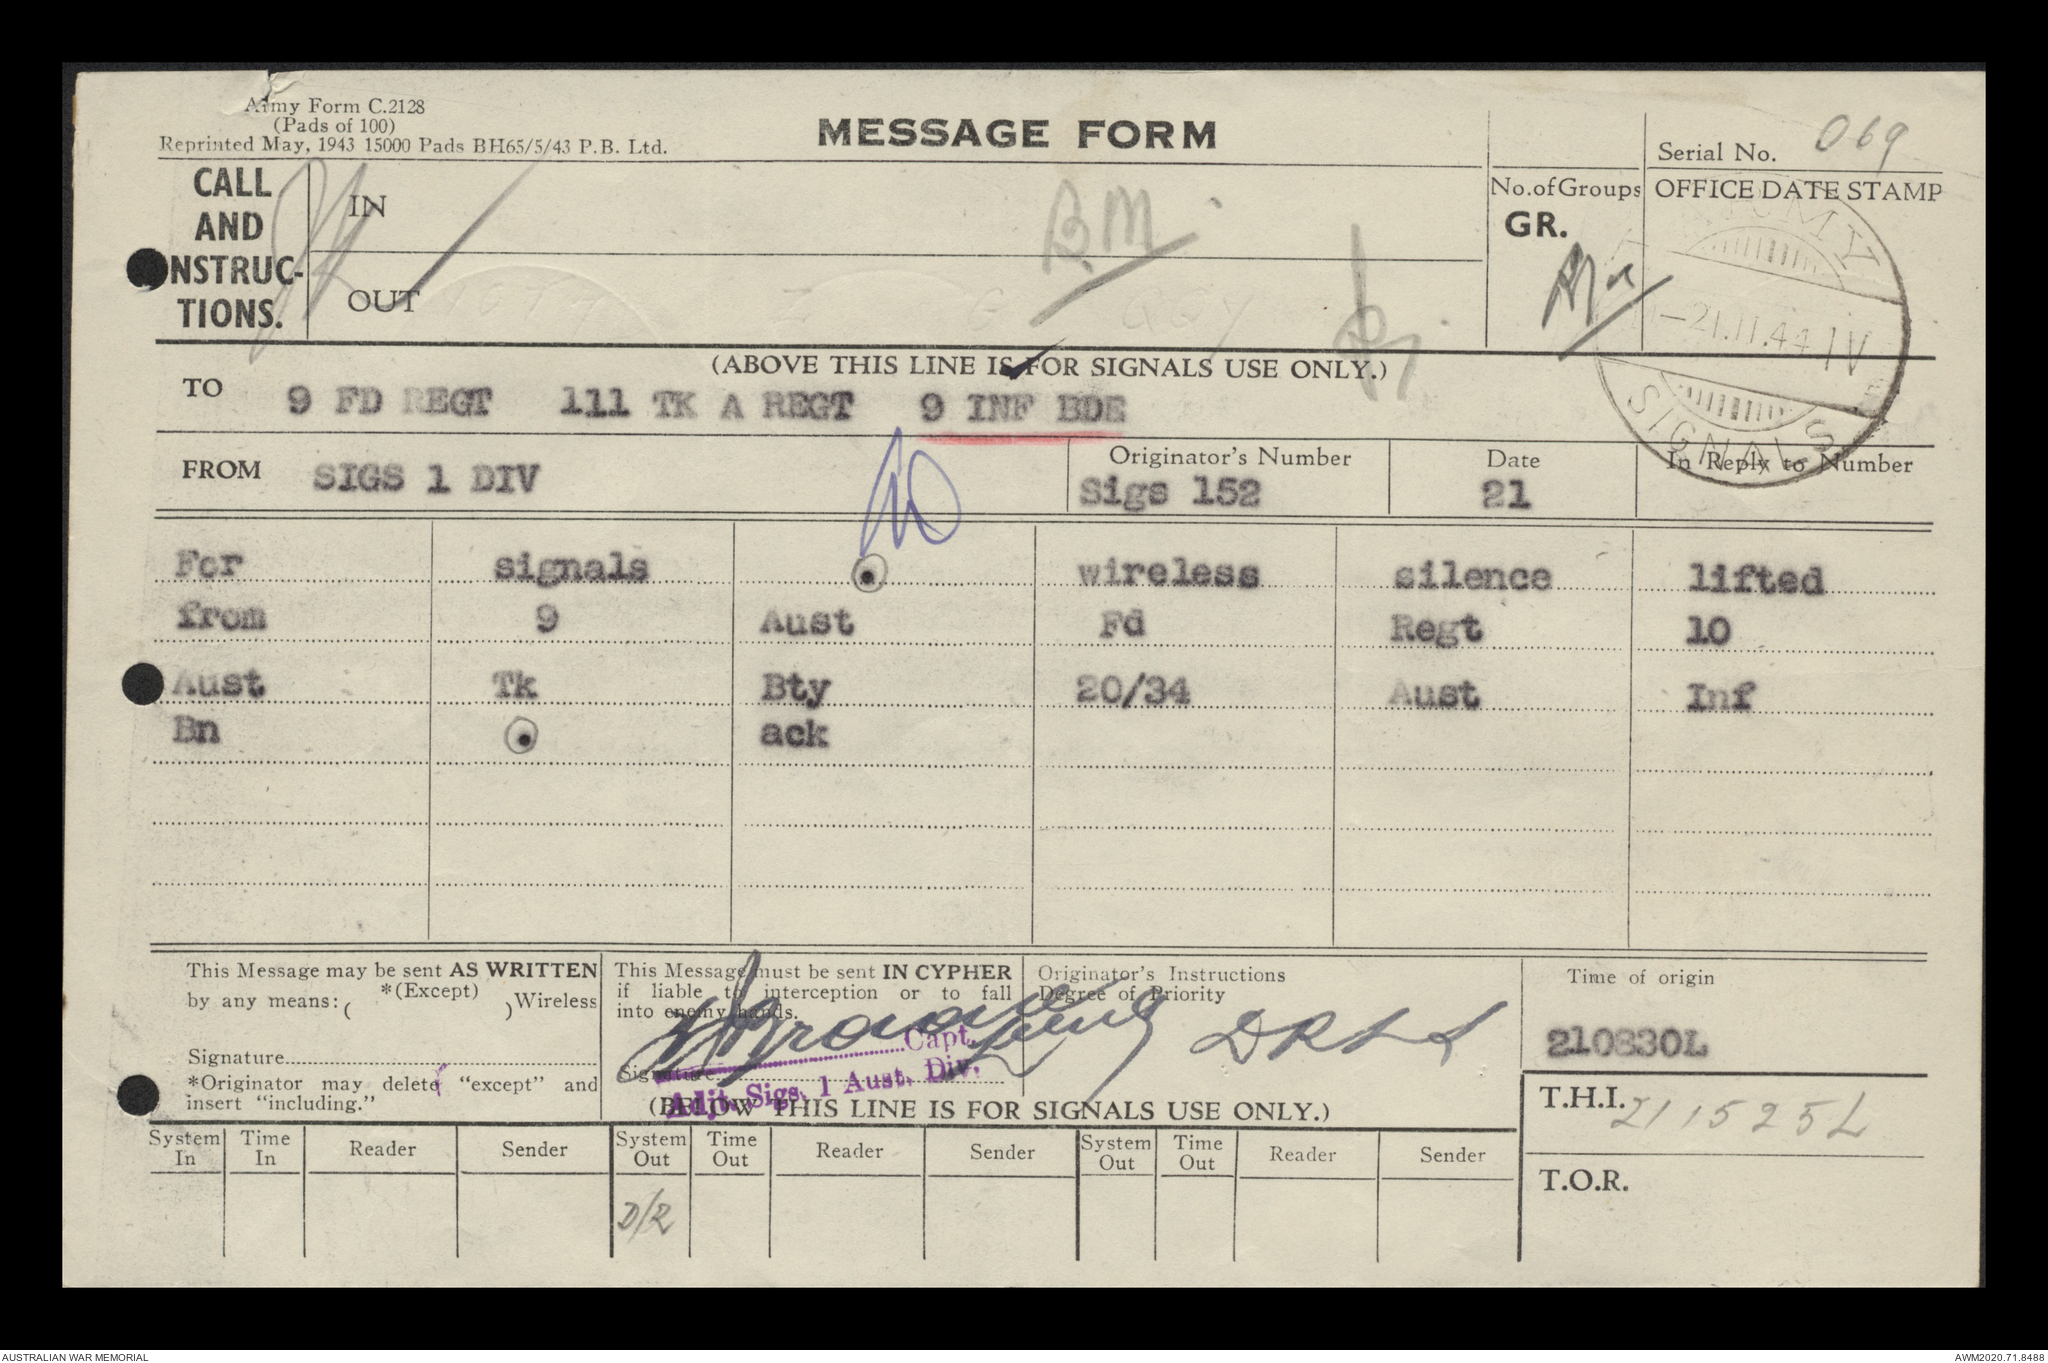 Army Form C.2128
(Pads of 100)
Reprinted May, 1943 15000 Pads BH65/5/43 P.B. Ltd.
MESSAGE FORM
Serial No. 069
CALL
AND
INSTRUC-
TIONS.
IN
OUT
BM
No. of Groups
GR.
OFFICE DATE STAMP
ARMY
21.11.44 IV
SIGNALS
(ABOVE THIS LINE IS FOR SIGNALS USE ONLY.)
TO 9 FD REGT 111 TK A REGT 9 INF BDE
FROM SIGS 1 DIV
Originator's Number
Sigs 152
Date
21
In Reply to Number
For signals . wireless silence lifted
from 9 Aust Fd Regt 10
Aust Tk Bty 20/34 Aust Inf
Bn . ack
This Message may be sent AS WRITTEN
by any means: ( *(Except) ) Wireless
Signature
*Originator may delete "except" and
insert "including."
This Message must be sent IN CYPHER
if liable to interception or to fall
into enemy hands.
Signature
Capt.
Adjt. Sigs. 1 Aust. Div.
Originator's Instructions
Degree of Priority
DRLS
Time of origin
210830L
(BELOW THIS LINE IS FOR SIGNALS USE ONLY.)
T.H.I. 211525L
T.O.R.
System In Time In Reader Sender System Out Time Out Reader Sender System Out Time Out Reader Sender
D/R
AUSTRALIAN WAR MEMORIAL
AWM2020.71.8488